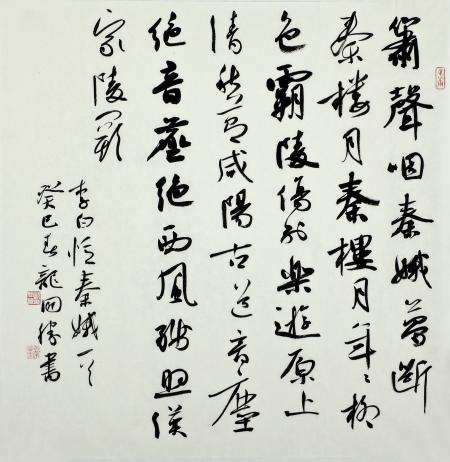 簫聲咽秦娥夢断
秦楼月秦樓月年々柳
色霸陵傷別樂遊原上
清秋節咸陽古道音塵
絶音塵絶西風殘照漢
家陵闕
李白憶秦娥一首
癸巳春龍開勝書